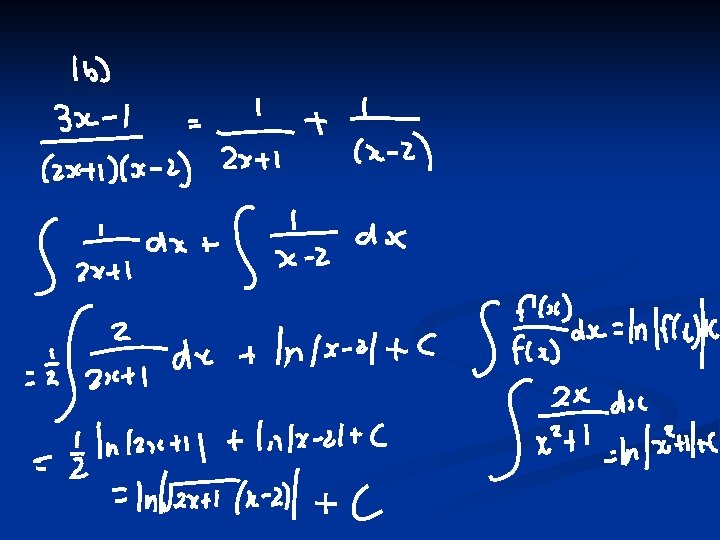 1b)
(3x-1)/((2x+1)(x-2)) = 1/(2x+1) + 1/(x-2)
∫ 1/(2x+1) dx + ∫ 1/(x-2) dx
= 1/2 ∫ 2/(2x+1) dx + ln|x-2| + C
= 1/2 ln|2x+1| + ln|x-2| + C
= ln|√(2x+1) (x-2)| + C
∫ f'(x)/f(x) dx = ln|f(x)|+C
∫ 2x/(x²+1) dx
= ln|x²+1|+C